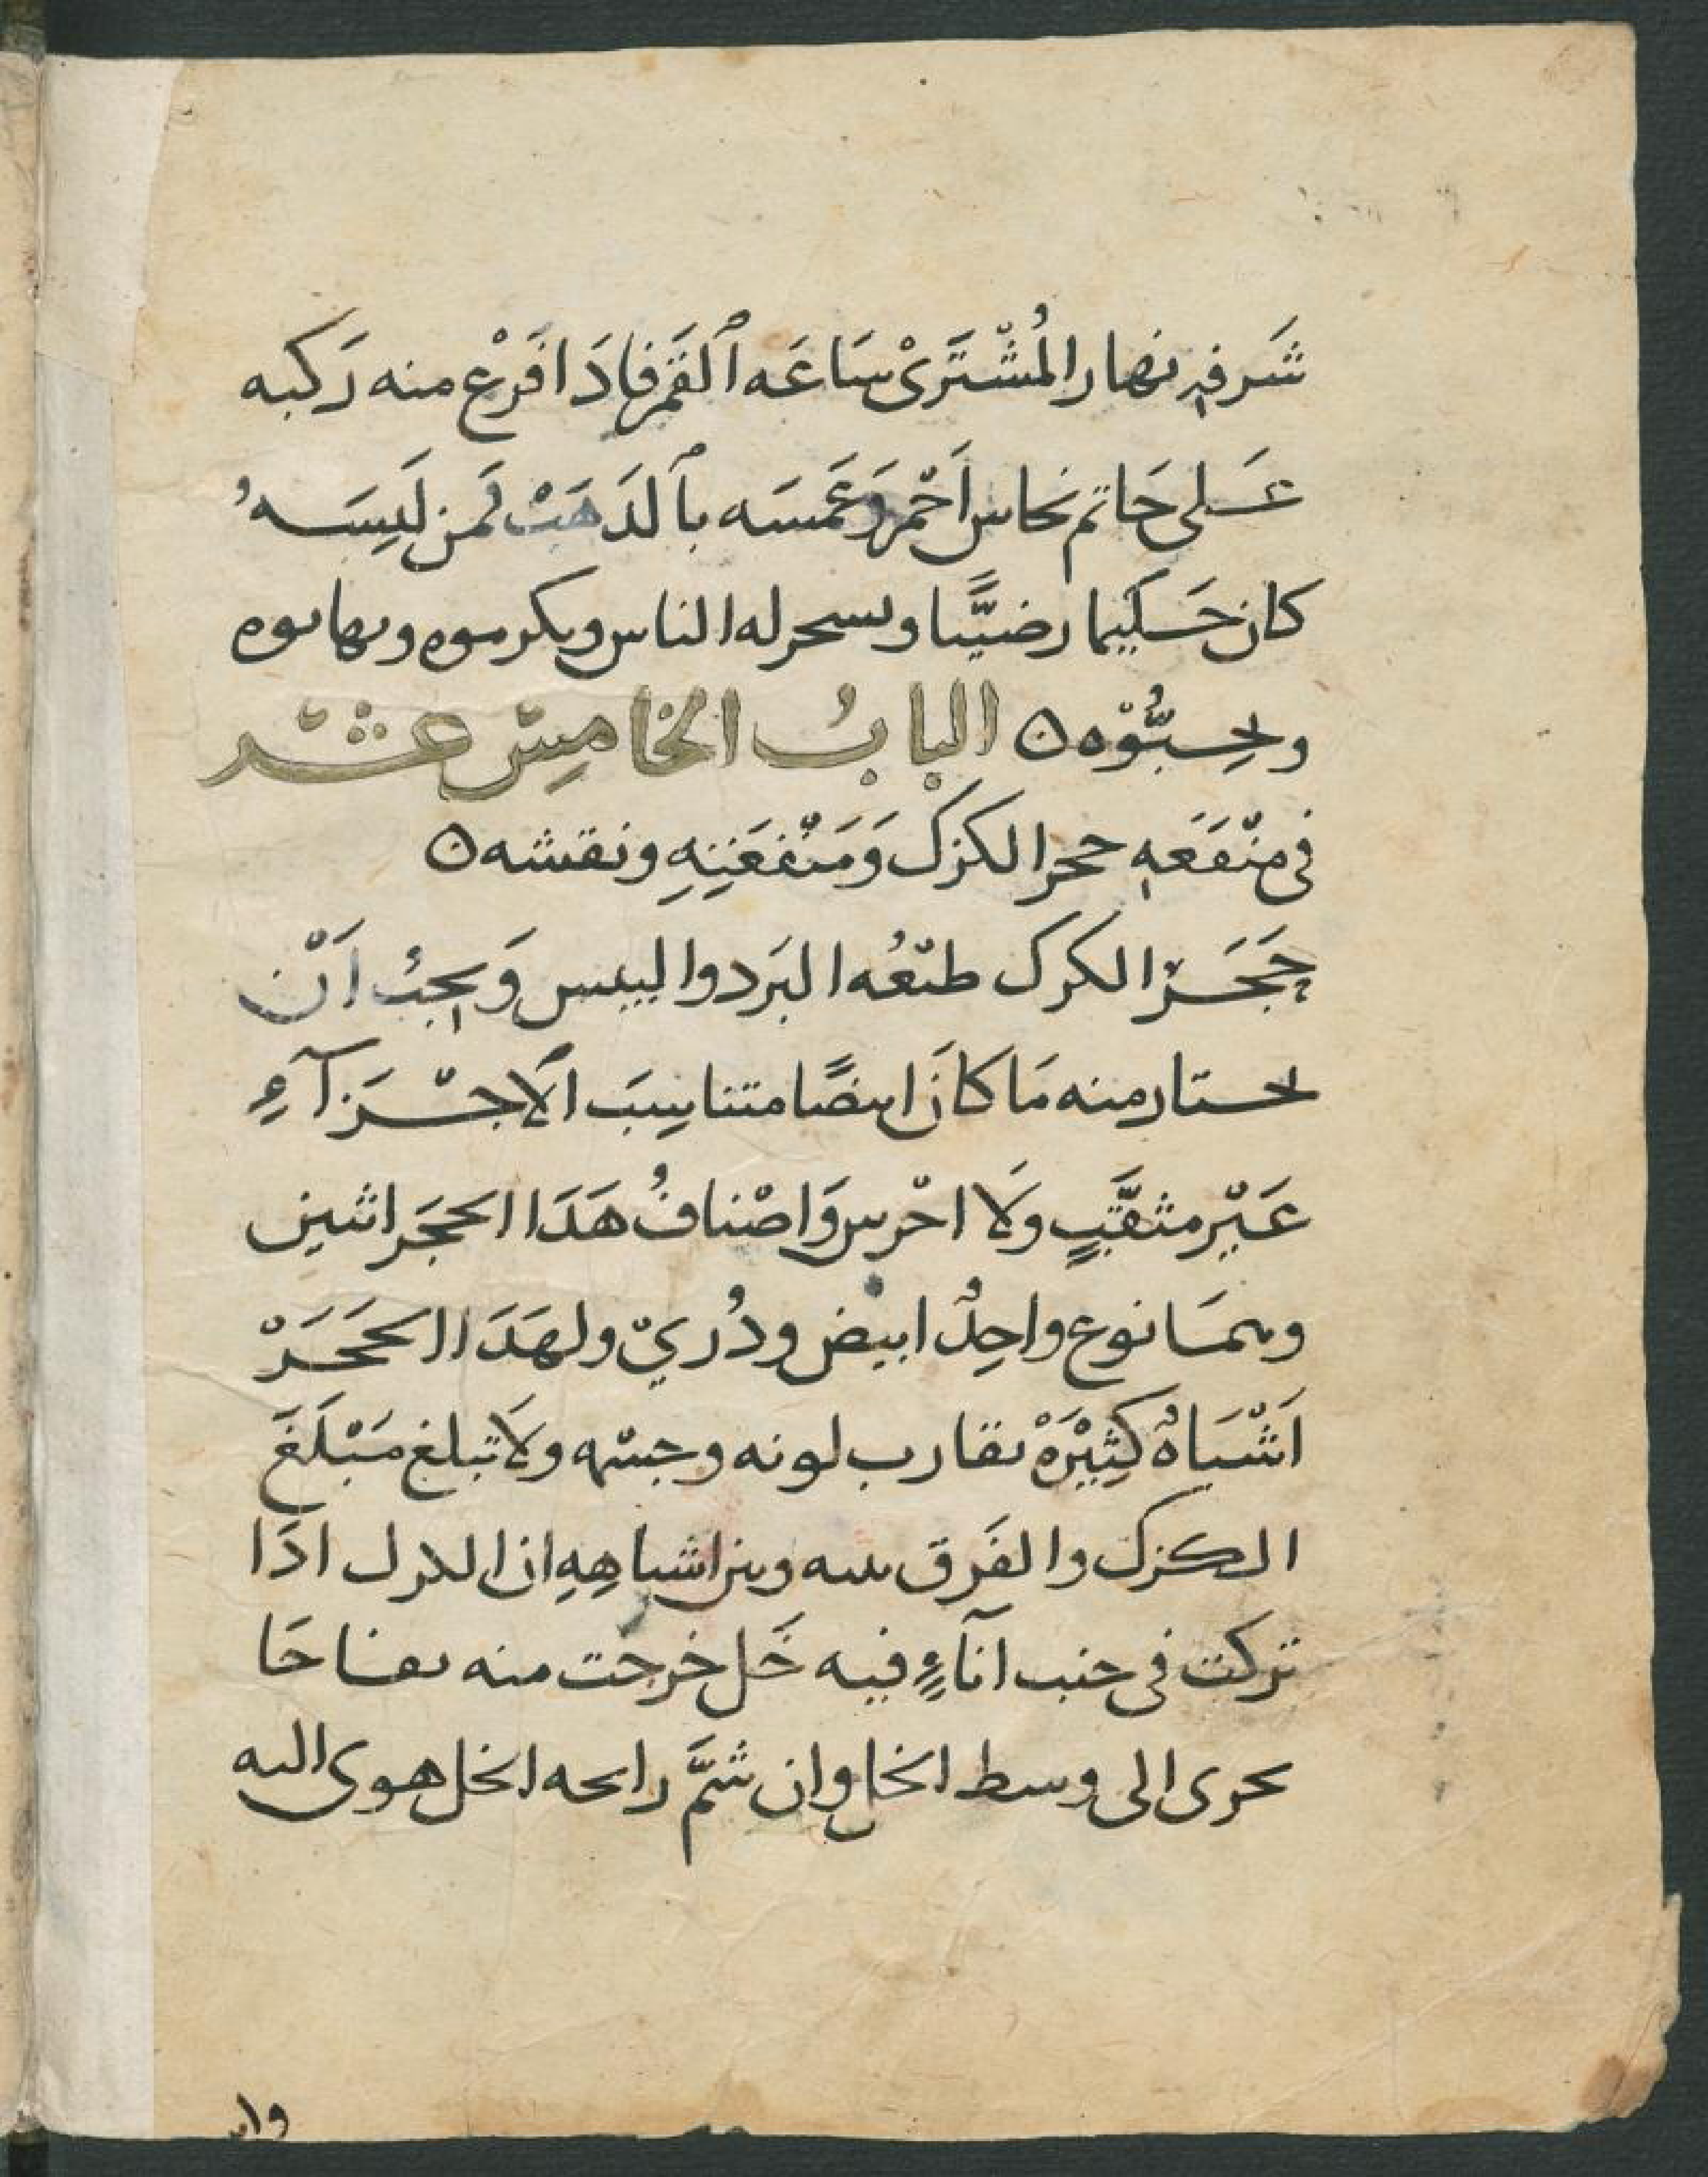 شَرفهِ نهار المُشْتَرَىْ سَاعَه ٱلقَمَر فادَا فَرْغ منه رَكبه
عَلى خَاتم نحاس اَحْمَر وَغَمسَه بٱلدَهَبْ فمن لَبِسَهُ
كان حَكَيما رضيًّا ويسحر له الناس ويكرموه ويهابوه
ويحِبُّوْه ٥ البابُ الخامِسْ عشْر
فى منْفَعَهِ حجر الكزك وَمَنْفعَتِهِ ونقشه ٥
حَجَرْ الكرك طبْعُه البَرد واليبس وَيجبُ اَنْ
يحتار منه مَا كانَ ايضًا متناسِبَ ٱلاجْزآءِ
عَيْر مثقَّبٍ وَلَا احْرس وَاصْنافُ هَدَا الححَر اثنين
وهمَا نوع واحِدُ ابيض ودُريّ ولهَدَا الححَرْ
اَشْيَاهْ كثِيْرَهْ تقارب لونه وجسْمه ولَا تبلغ مَبْلَغَ
الكزك والفَرق بينه وبين اشباهِهِ ان الكرك ادَا
تركت فى جنب آنآءٍ فيه خَل خرجت منه نفاخَا
يجرى الى وسط الخل وان شَمَّ رايحه الخل هوى اليه